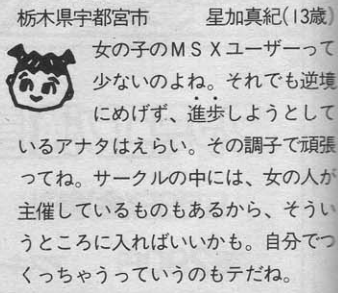 栃木県宇都宮市　星加真紀(13歳)
女の子のMSXユーザーって
少ないのよね。それでも逆境
にめげず、進歩しようとして
いるアナタはえらい。その調子で頑張
ってね。サークルの中には、女の人が
主催しているものもあるから、そうい
うところに入ればいいかも。自分でつ
くっちゃうっていうのもテだね。